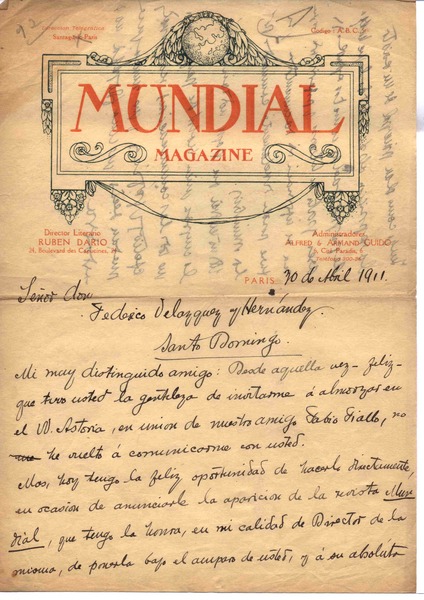 92
Santagui-Paris
Código: A. B. C.
MUNDIAL
MAGAZINE
Director Literario
RUBEN DARIO
24, Boulevard des Capucines, 24
Administradores
ALFRED & ARMAND GUIDO
Cité Paradis, 6
PARIS: 30 de Abril 1911.
Señor don
Federico Velazquez y Hernández.
Santo Domingo.
Mi muy distinguido amigo: Desde aquella vez – feliz –
que tuvo usted la gentileza de invitarme á almorzar en
el W. Astoria, en union de nuestro amigo Fabio Fiallo, no
he vuelto á comunicarme con usted.
Mas, hoy tengo la feliz oportunidad de hacerlo directamente,
en ocasion de anunciarle la aparicion de la revista Mun
dial, que tengo la honra, en mi calidad de Director de la
misma, de ponerla bajo el amparo de usted, y á su absoluta